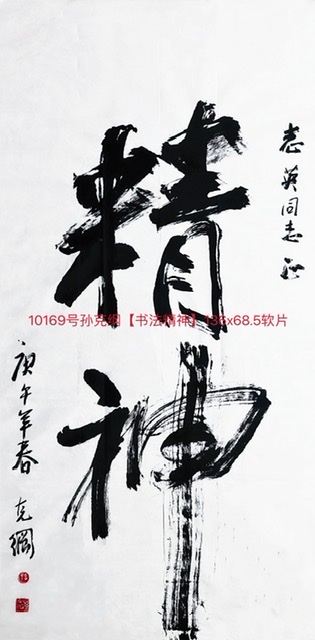 志英同志正
精神
10169号孙克纲【书法精神】136x68.5软片
庚午年春
克纲